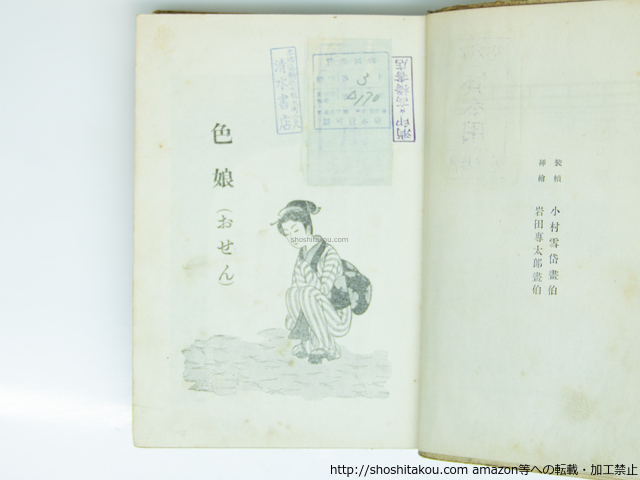 裝幀 小村雪岱畫伯
挿繪 岩田專太郎畫伯
色娘(おせん)
清水書店
消印
高橋書店
3
4170
shoshitakou.com
http://shoshitakou.com amazon等への転載・加工禁止